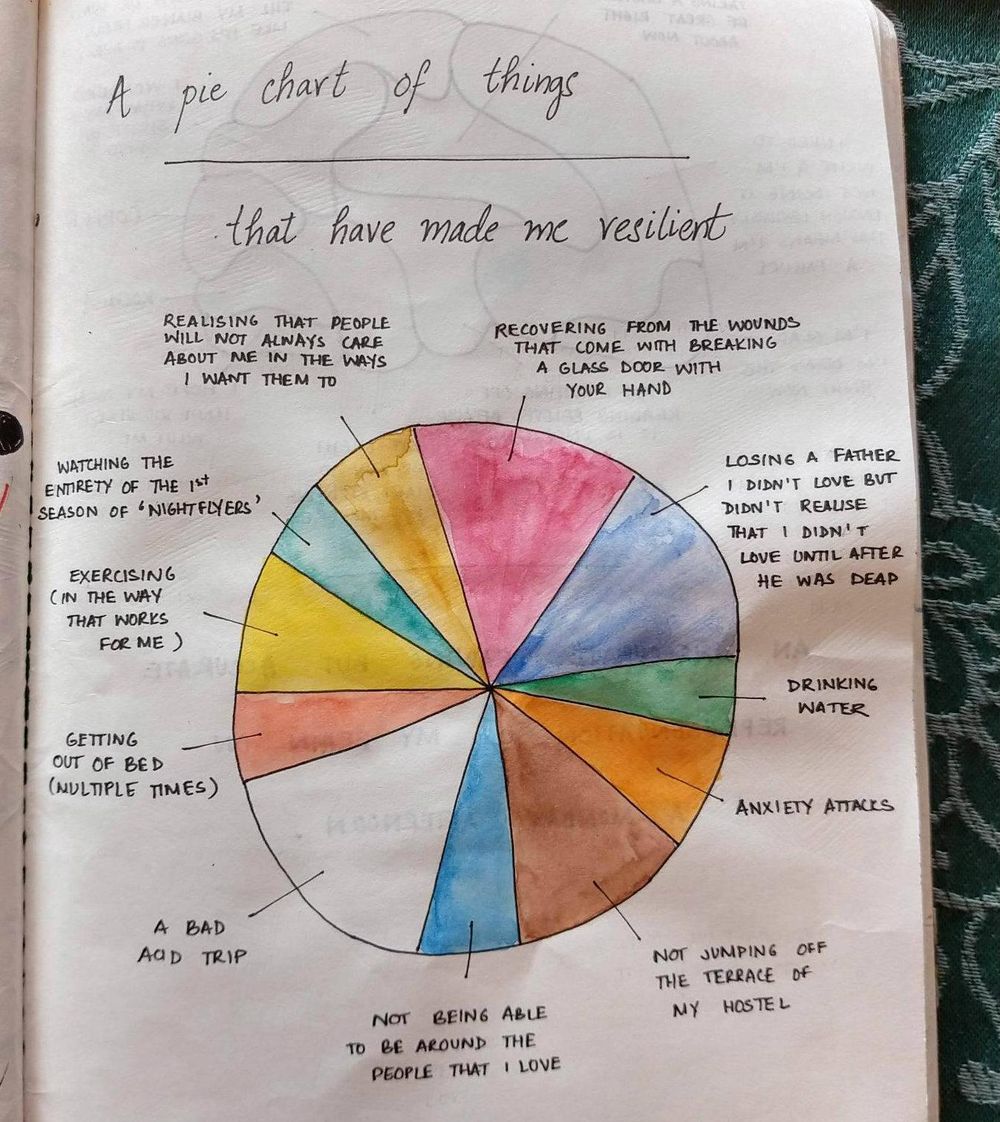 A pie chart of things
that have made me resilient
REALISING THAT PEOPLE
WILL NOT ALWAYS CARE
ABOUT ME IN THE WAYS
I WANT THEM TO
RECOVERING FROM THE WOUNDS
THAT COME WITH BREAKING
A GLASS DOOR WITH
YOUR HAND
WATCHING THE
ENTIRETY OF THE 1st
SEASON OF 'NIGHTFLYERS'
LOSING A FATHER
I DIDN'T LOVE BUT
DIDN'T REALISE
THAT I DIDN'T
LOVE UNTIL AFTER
HE WAS DEAD
EXERCISING
(IN THE WAY
THAT WORKS
FOR ME)
DRINKING
WATER
GETTING
OUT OF BED
(MULTIPLE TIMES)
ANXIETY ATTACKS
A BAD
ACID TRIP
NOT JUMPING OFF
THE TERRACE OF
MY HOSTEL
NOT BEING ABLE
TO BE AROUND THE
PEOPLE THAT I LOVE